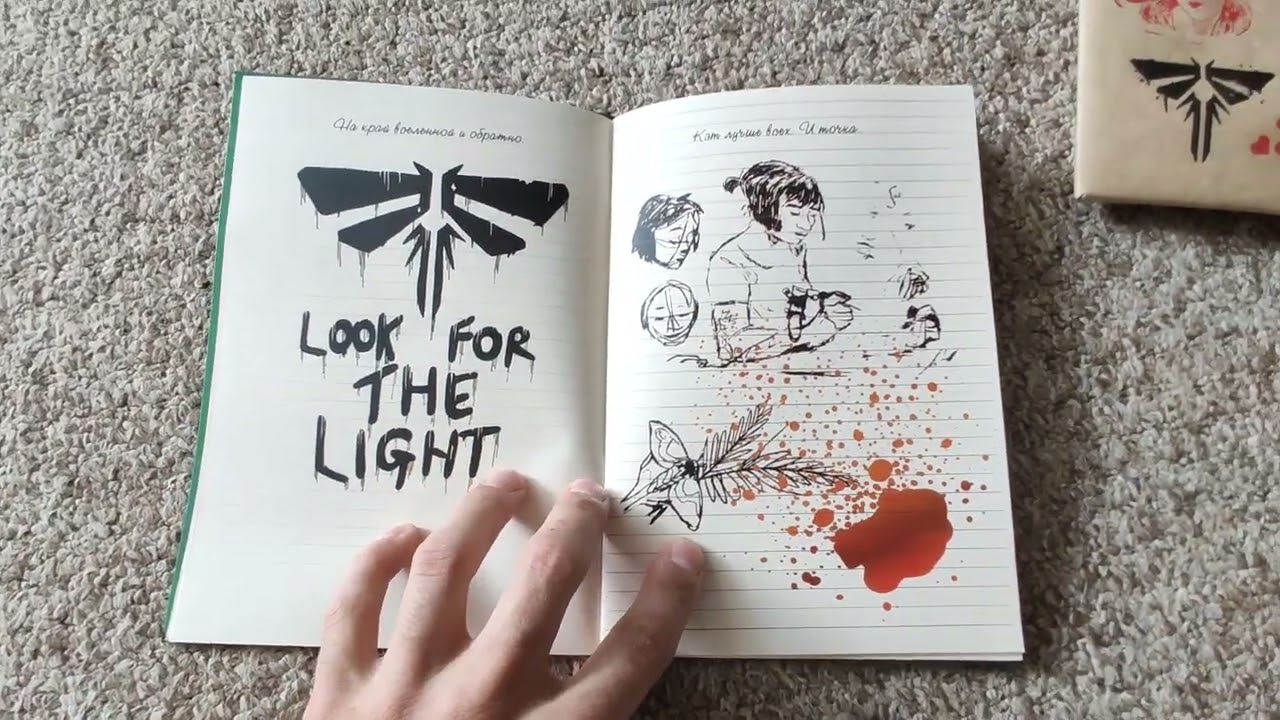 На край вселенной и обратно.
LOOK FOR
THE
LIGHT
Кат лучше всех. И точка